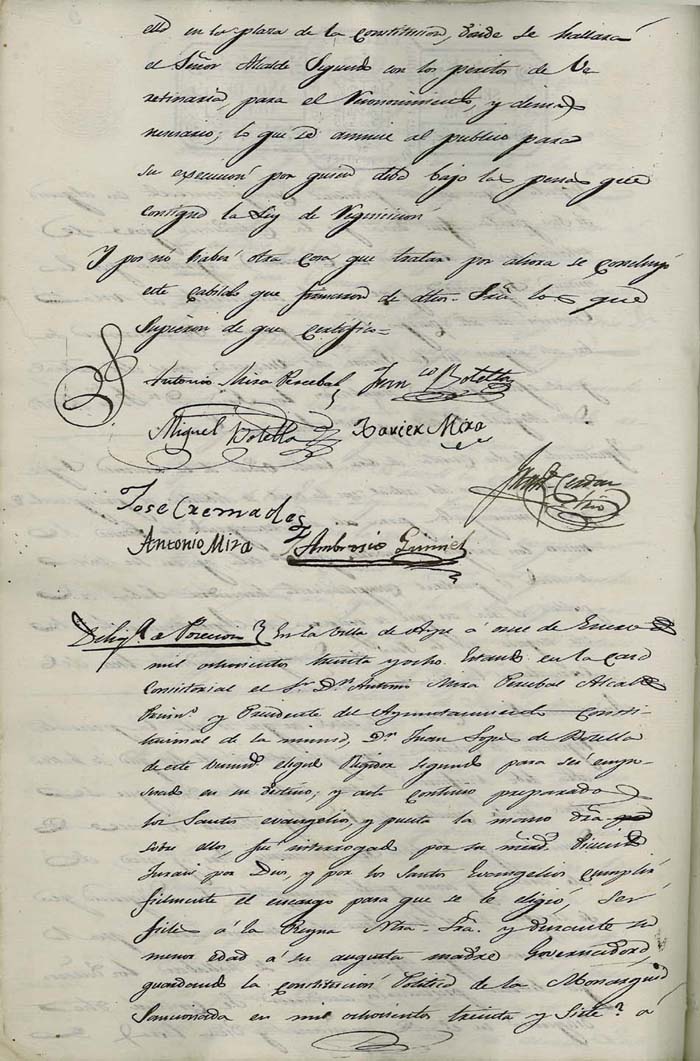 ello en la plaza de la Constitucion, donde se hallará
el Señor Alcalde Segundo con los peritos de Ve
terinaria, para el Reconocimiento, y demas
necesario; lo que se anuncie al publico para
su execucion por quien deba bajo las penas que
consigna la Ley de Requisicion
Y por nó haber otra cosa que tratar por ahora se concluyó
este cabildo que firmaron de dhos. Sres. los que
supieron de que certifico =
Antonio Mira Percebal Juan Lo Botella
Miguel Botella Xavier Mira
Jose Cremades
Antonio Mira Ambrosio
Dilig.a de Posecion En la Villa de Aspe á once de Enero de
mil ochocientos treinta y ocho. Estando en la Casa
Consistorial el Sr. Dn. Antonio Mira Percebal Alcalde
Primo. y Presidente del Ayuntamiento Consti-
tucional de la misma, Dn. Juan Lopez de Botella
de este vecind. elegido Regidor segundo para ser empo-
sesionado en su destino; y acto continuo preparado
los Santos evangelios, y puesta la mano dra.
sobre ellos, fue interrogado por su mrd. diciendo
Jurais por Dios, y por los Santos Evangelios cumplir
fielmente el encargo para que se le eligió, ser
fiel á la Reyna Ntra. Sra. y durante su
menor edad á su augusta madre Governadora,
guardando la constitucion Politica de la Monarquia
Sancionada en mil ochocientos treinta y siete? á